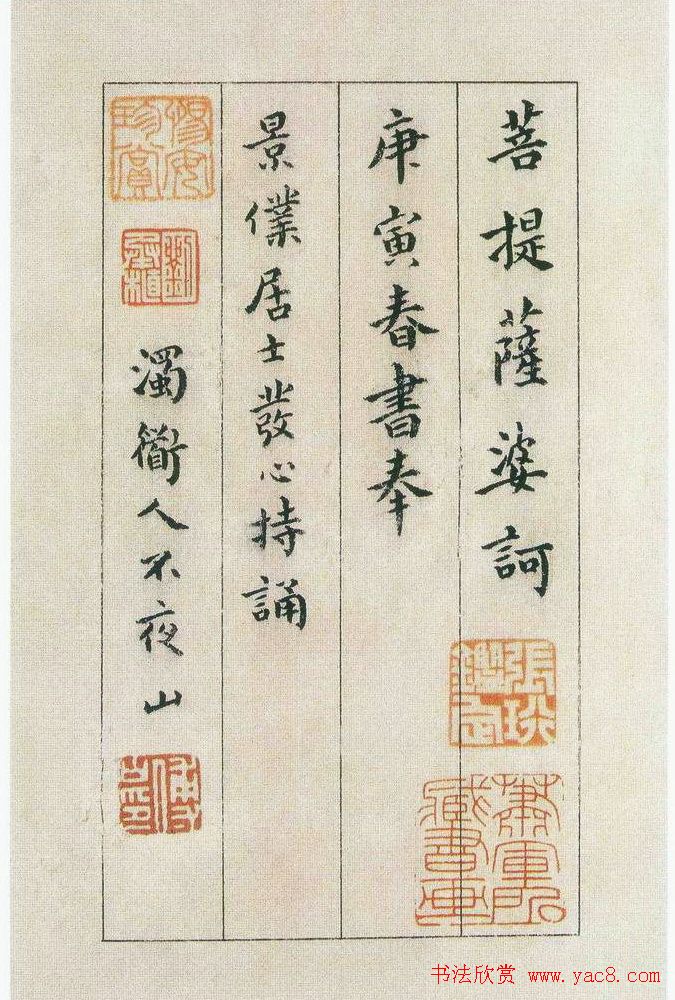 菩提薩婆訶
庚寅春書奉
景僕居士發心持誦
濁衜人不夜山
蕭軍所藏書畫
书法欣赏 www.yac8.com